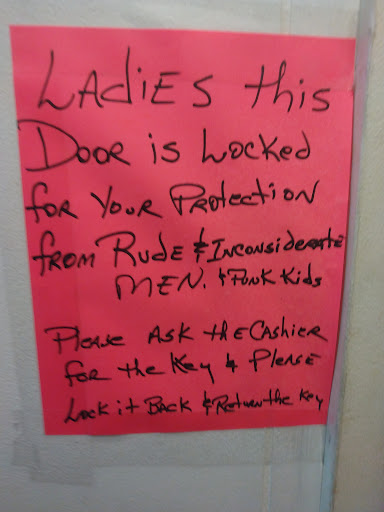 LADIES this
DOOR is Locked
for Your Protection
from RUDE & INCONSIDERATE
MEN. & FUNK Kids
Please ASK the CASHIER
for the Key & Please
Lock it BACK & Return the Key